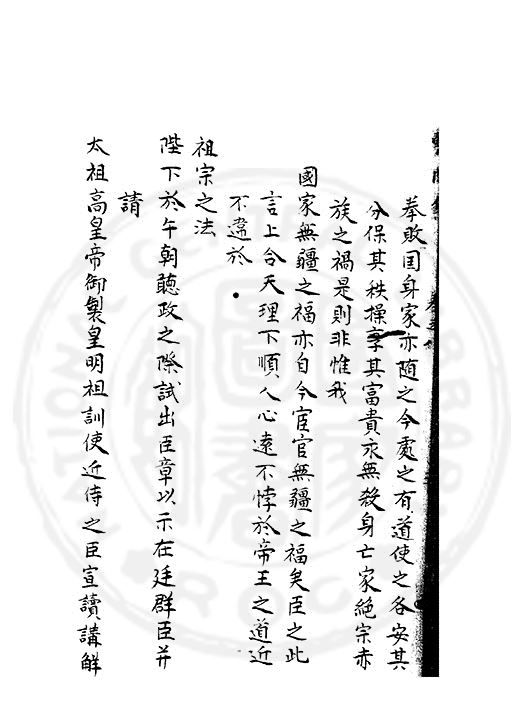 奉敗国身家亦随之今處之有道使之各安其
分保其秩操享其富貴永無殺身亡家絶宗赤
族之禍是則非惟我
國家無疆之福亦自今宦官無疆之福矣臣之此
言上合天理下順人心遠不悖於帝王之道近
不違於
祖宗之法
陛下於午朝聽政之際試出臣章以示在廷群臣并
請
太祖高皇帝御製皇明祖訓使近侍之臣宣讀講解